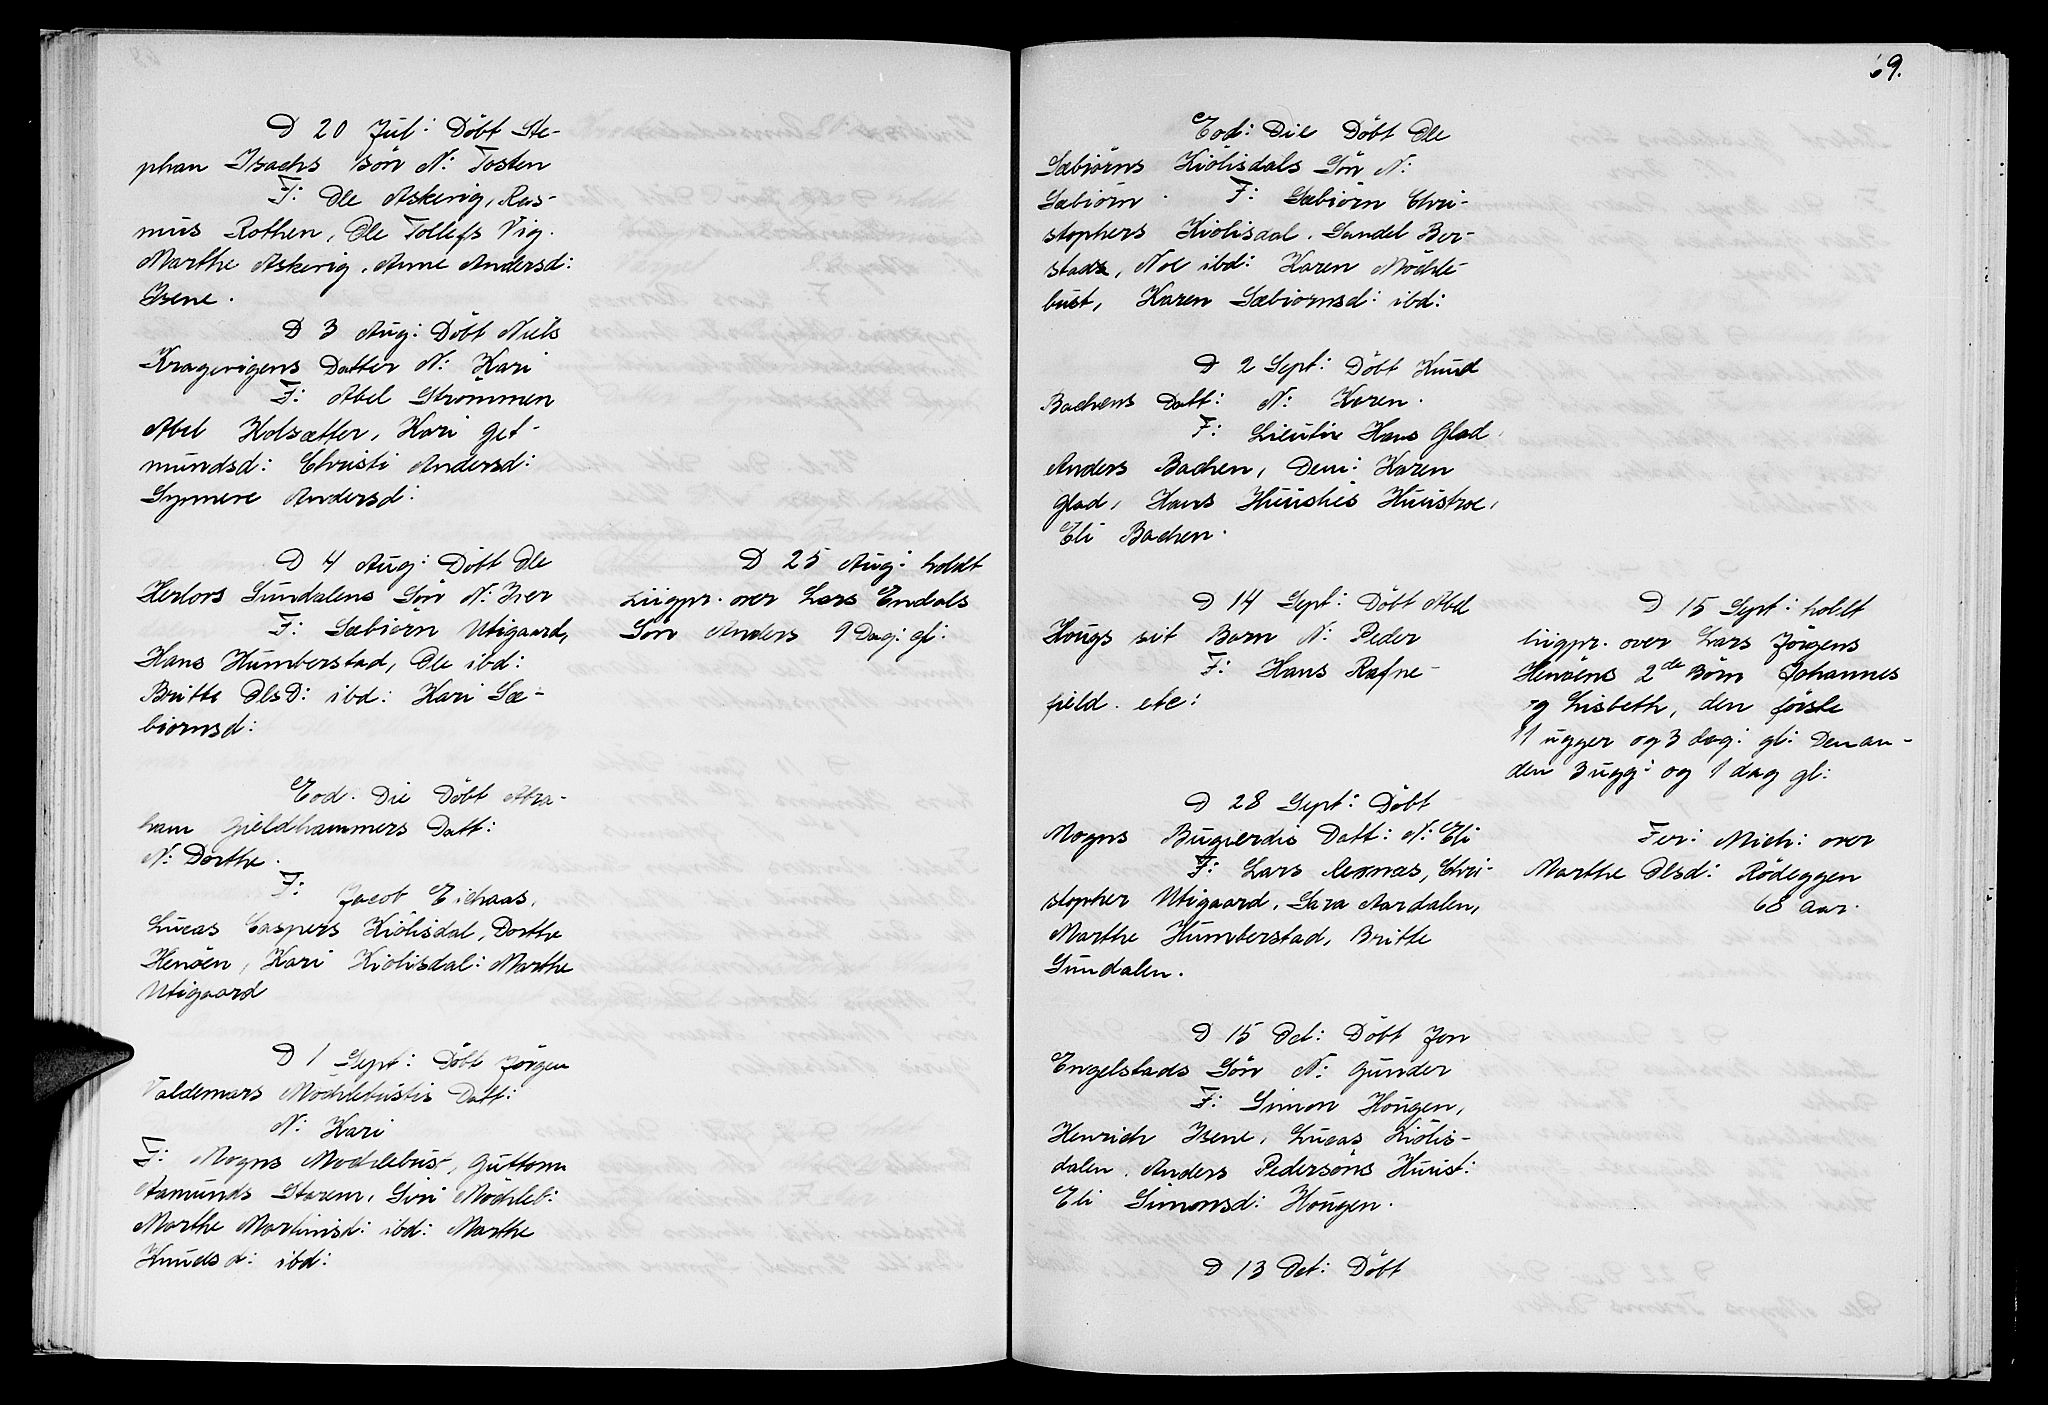 D 20 Jul: Döbt Ste-
phan Isachs Sön N: Tosten
F: Ole Askevig, Ras-
mus Rothen, Ole Tollefs Vig.
Marthe Askevig. Anne Andersd:
Isene.
D 3 Aug: Döbt Niels
Kragevigens Datter N: Kari
F: Abel Strømmen
Abel Kolsætter, Kari Get-
mundsd: Christi Andersd:
Synnere Andersd:
D 4 Aug: Döbt Ole
Herlovs Sundalens Sön N: Iver
F: Sæbiörn Utigaard,
Hans Humberstad, Ole ibd:
Britte OlsD: ibd: Kari Sæ-
biornsd:
Eod. Die Döbt Abra-
ham Gieldhammers Datt:
N: Dorthe.
F: Jacob Eichaas,
Lucas Caspers Kiölisdal, Dorthe
Henöen, Kari Kiolisdal: Marthe
Utigaard
D 1 Sept: Döbt Jörgen
Valdemars Möchlebustis Datt:
N: Kari
F: Mogns Mochlebust, Guttorm
Aamunds Starem, Siri Möchleb:
Marthe Martinisd: ibd: Marthe
Knudsd: ibd:
D 25 Aug: holdt
Liigpr. over Lars Endals
Sön Anders 9 Dag: gl:
69.
Eod: Die Döbt Ole
Sæbiörns Kiölisdals Sön N:
Sæbiorn. F: Sæbiorn Chri-
stophers Kiolisdal. Sandel Ber-
stad, Noe ibd: Karen Möchle-
bust, Karen Sæbiornsd: ibd:
D 2 Sept: Döbt Knud
Bachens Datt: N: Karen.
F: Hans Glad,
Anders Bachen, Karen
Glad, Hans Huustroe,
Eli Bachen.
D 14 Sept: Döbt Abel
Hougs sit Barn N: Peder
F: Hans Rafne-
field. etc:
D 28 Sept: Döbt
Mogns Bugierdis Datt: N: Eli
F: Lars Rexnæs, Chri-
stopher Utigaard, Sara Aardalen,
Marthe Humberstad, Britte
Sundalen.
D 15 Oct: Döbt Jon
Engelstads Sön N: Gunder
F: Simon Hougen,
Henrich Isene, Lucas Kiölis-
dalen. Anders Pedersöns Huust:
Eli Simonsd: Hougen.
D 13 Oct: Döbt
D 15 Sept: holdt
Liigpr. over Lars Jörgens
Henöens 2de Börn Johannes
og Lisbeth, den förste
11 ugger og 3 dag: gl: Den an-
den 3 ugg: og 1 dag gl:
Fer: Mich: over
Marthe Olsd: Rödeggen
68 Aar.